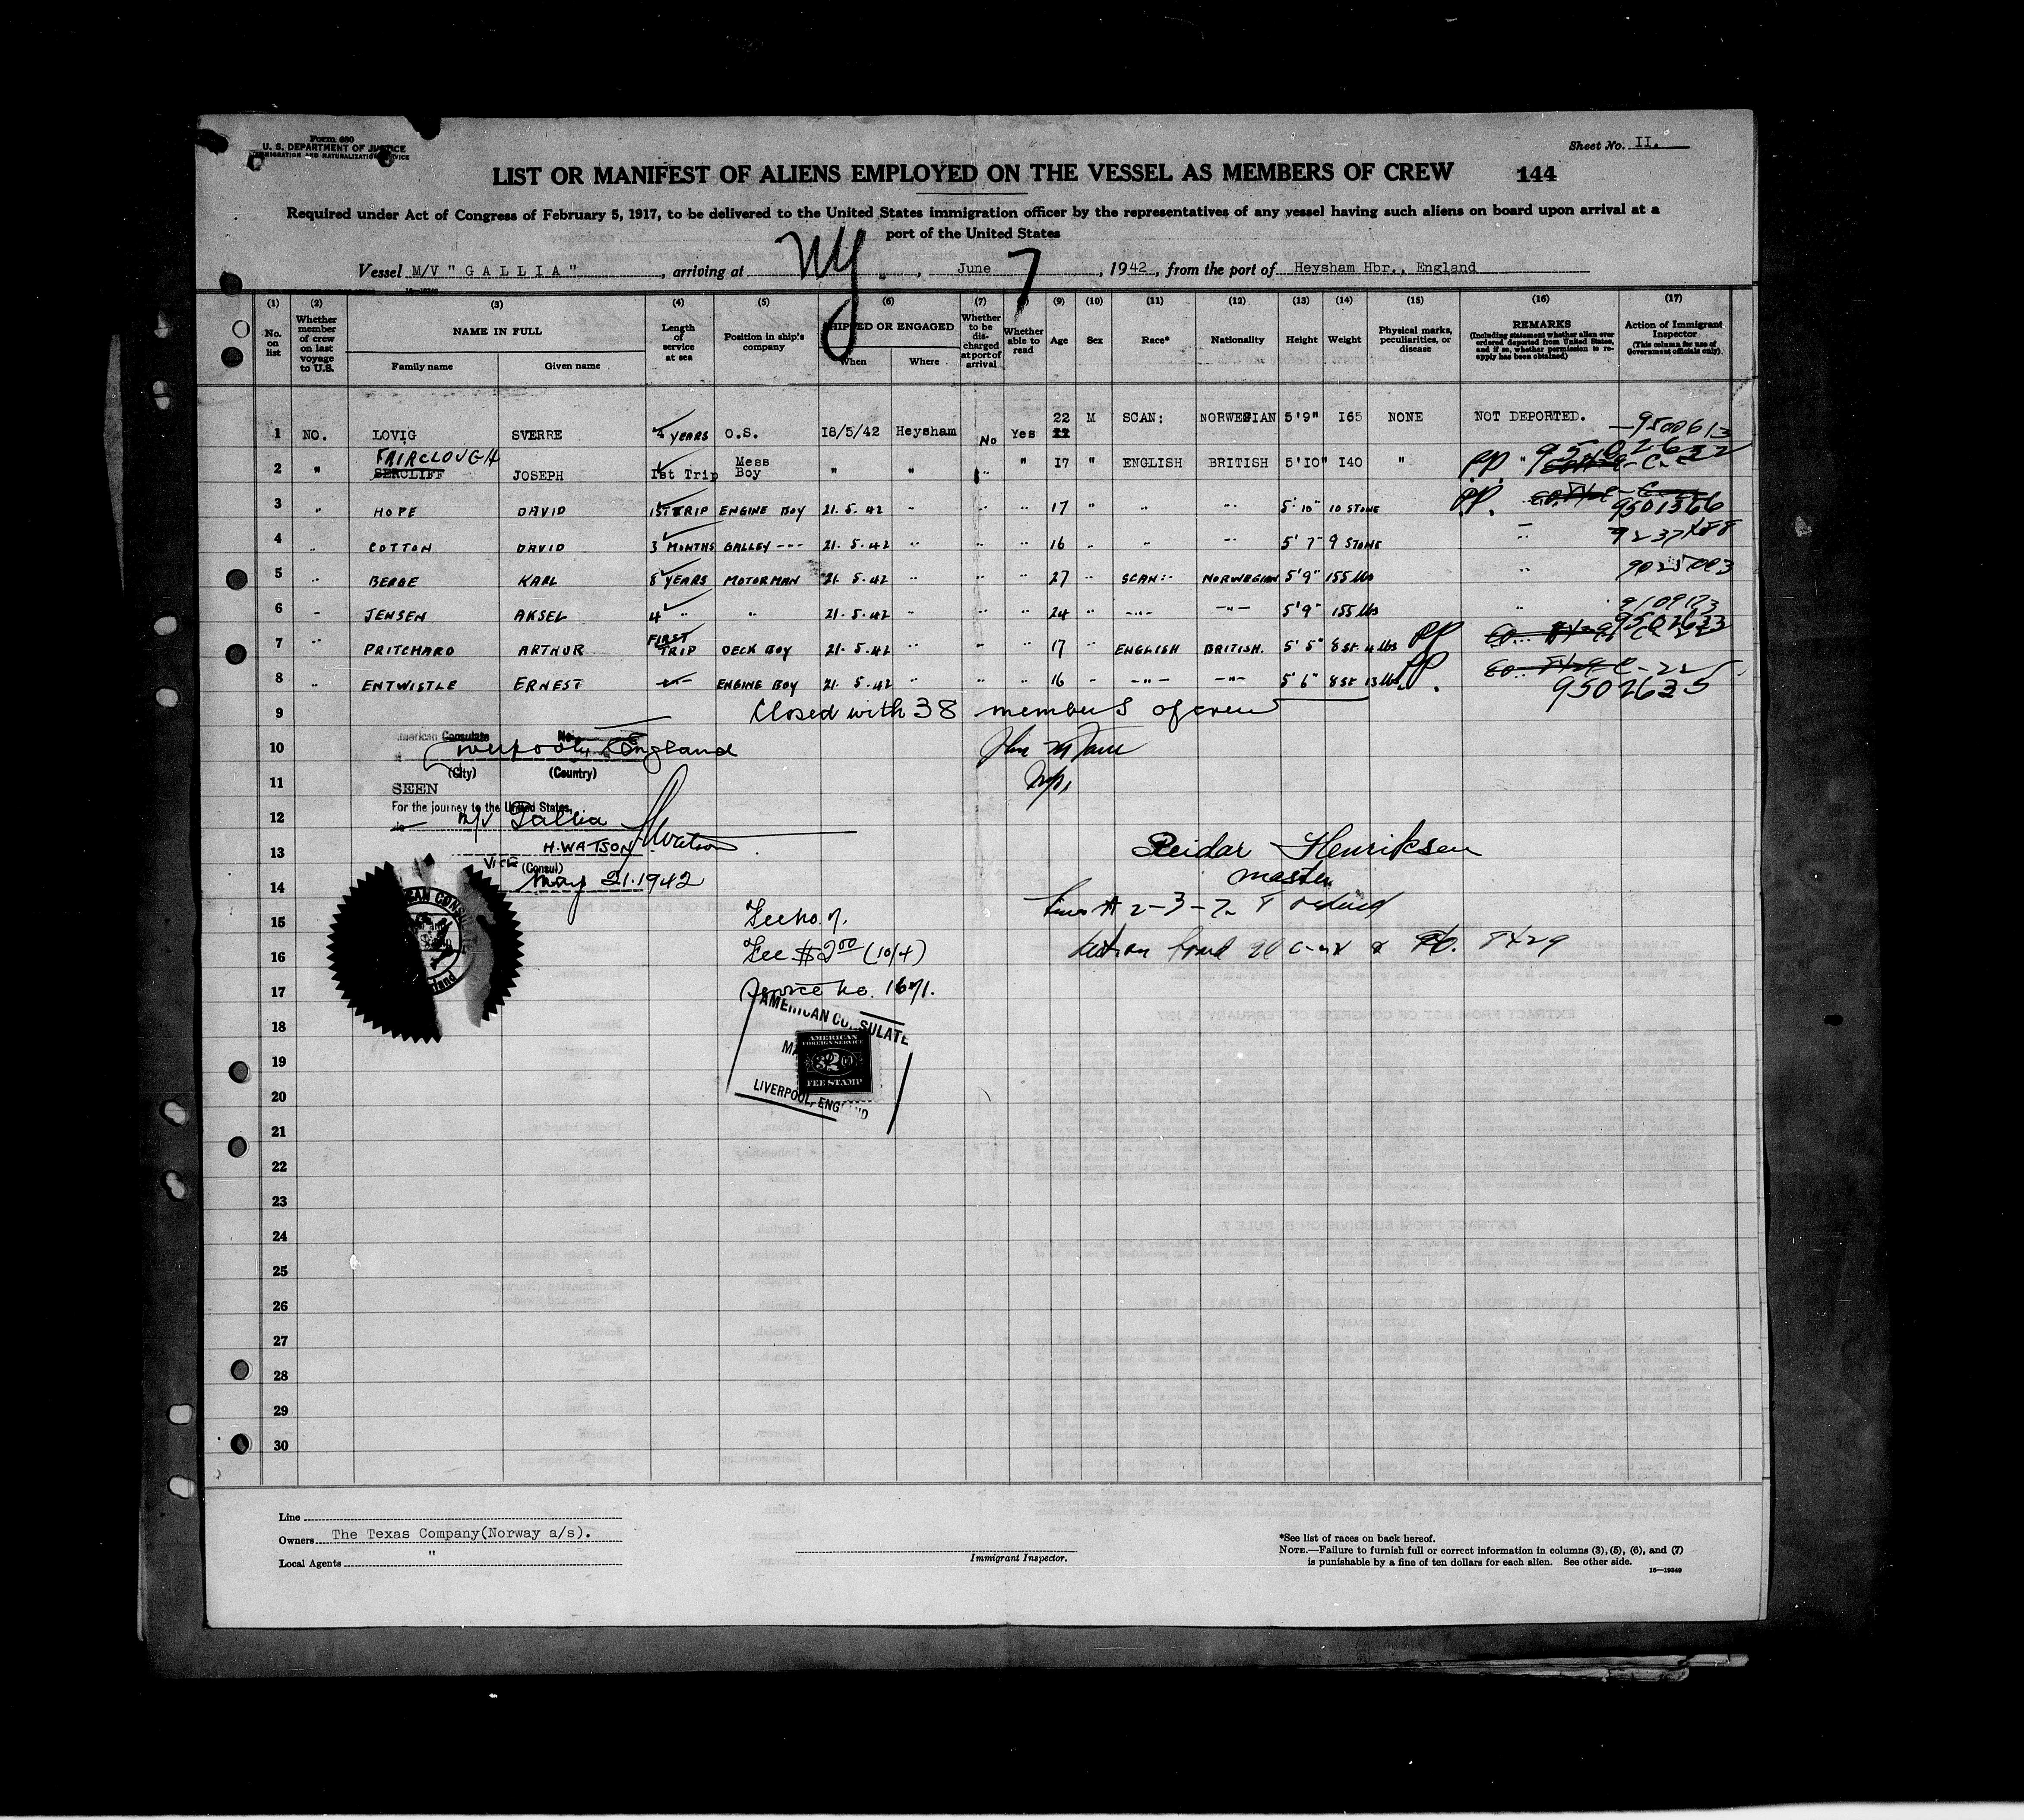 Form 680
U. S. DEPARTMENT OF JUSTICE
IMMIGRATION AND NATURALIZATION SERVICE
Sheet No. II.
LIST OR MANIFEST OF ALIENS EMPLOYED ON THE VESSEL AS MEMBERS OF CREW 144
Required under Act of Congress of February 5, 1917, to be delivered to the United States immigration officer by the representatives of any vessel having such aliens on board upon arrival at a
port of the United States
Vessel M/V " G A L L I A " , arriving at NY , June 7 , 1942, from the port of Heysham Hbr., England
16—19349
(1) (2) (3) (4) (5) (6) (7) (9) (10) (11) (12) (13) (14) (15) (16) (17)
No. on list
Whether member of crew on last voyage to U.S.
NAME IN FULL
Family name Given name
Length of service at sea
Position in ship's company
SHIPPED OR ENGAGED
When Where
Whether to be discharged at port of arrival
Whether able to read
Age Sex Race* Nationality Height Weight
Physical marks, peculiarities, or disease
REMARKS
(Including statement whether alien ever ordered deported from United States, and if so, whether permission to reapply has been obtained)
Action of Immigrant Inspector
(This column for use of Government officials only).
1 NO. LOVIG SVERRE 4 YEARS O.S. I8/5/42 Heysham No Yes 22 M SCAN: NORWEGIAN 5'9" I65 NONE NOT DEPORTED. 9500613
FAIRCLOUGH
2 " SERCLIFF JOSEPH Ist Trip Mess Boy " " " " I7 " ENGLISH BRITISH 5'IO" I40 " PP. " 9502632
3 " HOPE DAVID 1ST TRIP ENGINE BOY 21. 5. 42 " " " 17 " " " 5' 10" 10 STONE PP. 9501366
4 " COTTON DAVID 3 MONTHS GALLEY --- 21. 5. 42 " " " 16 " " " 5' 7" 9 STONE "
5 " BERGE KARL 8 YEARS MOTORMAN 21. 5. 42 " " " 27 " SCAN:- NORWEGIAN 5'9" 155 lbs "
6 " JENSEN AKSEL 4 " " 21. 5. 42 " " " 24 " -"- -"- 5'9" 155 lbs "
7 " PRITCHARD ARTHUR FIRST TRIP DECK BOY 21. 5. 42 " " " 17 " ENGLISH BRITISH. 5' 5" 8 St. 4 lbs PP 9502633
8 " ENTWISTLE ERNEST -"- ENGINE BOY 21. 5. 42 " " " 16 " -"- -"- 5' 6" 8 St 13 lbs PP. 9502635
9 Closed with 38 members of crew
American Consulate No.
10 at Liverpool, England
(City) (Country)
11 SEEN
For the journey to the United States,
12 M/V Gallia
13 H. WATSON
Reidar Henriksen
VICE (Consul)
Master
14 May 21. 1942
15 Fee No. 7.
16 Fee $2.00 (10/4)
17 Service No. 1671.
AMERICAN CONSULATE
AMERICAN FOREIGN SERVICE
FEE STAMP
LIVERPOOL, ENGLAND
18
19
20
21
22
23
24
25
26
27
28
29
30
Line
Owners The Texas Company(Norway a/s).
Local Agents "
Immigrant Inspector.
*See list of races on back hereof.
NOTE.—Failure to furnish full or correct information in columns (3), (5), (6), and (7)
is punishable by a fine of ten dollars for each alien. See other side.
16—19349